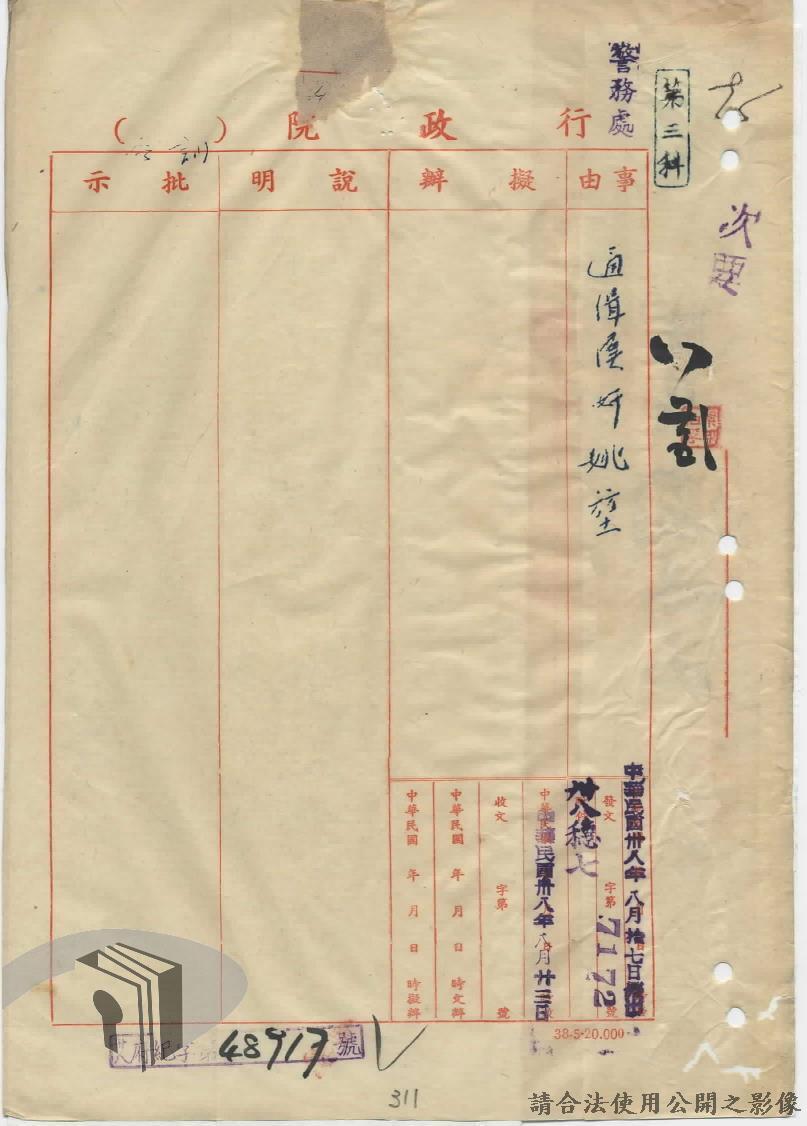 警務處
第三科
行政院（訓）
事由
擬辦
說明
批示
次題
通緝漢奸姚堃
中華民國卅八年八月拾七日
發文
字第
號
卅八穩七
7172
中華民國卅八年八月廿三日
收文
字第
號
中華民國
年
月
日
時文辦
中華民國
年
月
日
時擬辦
38-5-20.000
48917
號
311
請合法使用公開之影像